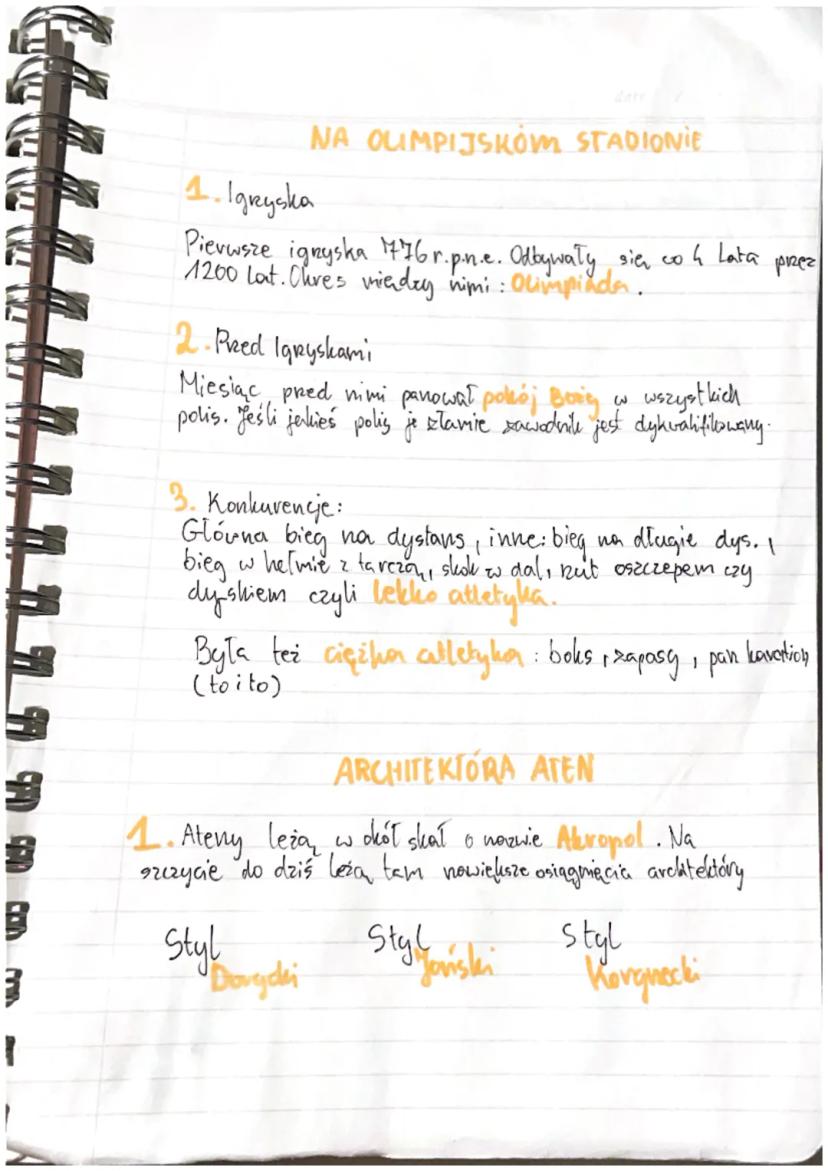 NA OLIMPIJSKÓM STADIONIE
1. Igryska
Pierwsze igryska 776 r.p.n.e. Odbywały się co 4 lata przez
1200 lat. Okres między nimi: Olimpiada.
2. Przed Igryskami
Miesiąc przed nimi panował pokój Boży w wszystkich
polis. Jeśli jakieś polis je złamie zawodnik jest dykwalifikowany.
3. Konkurencje:
Główna bieg na dystans, inne: bieg na długie dys.,
bieg w hełmie z tarczą, skok w dal, rzut oszczepem czy
dyskiem czyli lekko atletyka.
Była też ciężka atletyka: boks, zapasy, pan
(to i to)
ARCHITEKTÓRA ATEN
1. Ateny leżą w okół skał o nazwie Akropol. Na
szczycie do dziś leżą tam nowiększe osiągnięcia architektóry
Styl Styl Styl
Dorycki Joński Korynecki